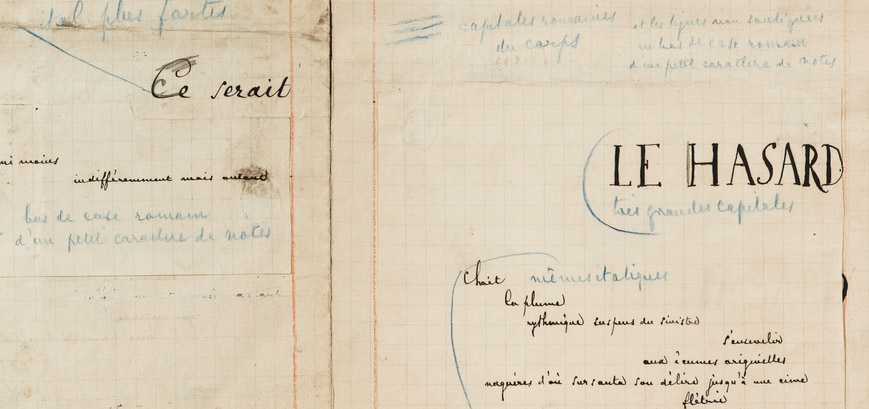 ital plus fortes
Ce serait
ni moins
indifféremment mais autant
bas de case romain
d'un petit caractère de notes
capitales romaines
du corps
et les lignes non soulignées
en bas de case romain
d'un petit caractère de notes
LE HASARD
très grandes capitales
Choit mêmes italiques
la plume
rythmique suspens du sinistre
s'ensevelir
aux écumes originelles
naguères d'où sursauta son délire jusqu'à une cime
flétrie